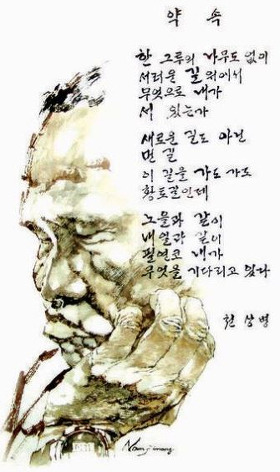 약 속
한 그루의 나무도 없이
서러운 길 위에서
무엇으로 내가
서 있는가
새로운 길도 아닌
먼 길
이 길을 가도 가도
황토길인데
노을과 같이
내일과 같이
필연코 내가
무엇을 기다리고 있다
천상병